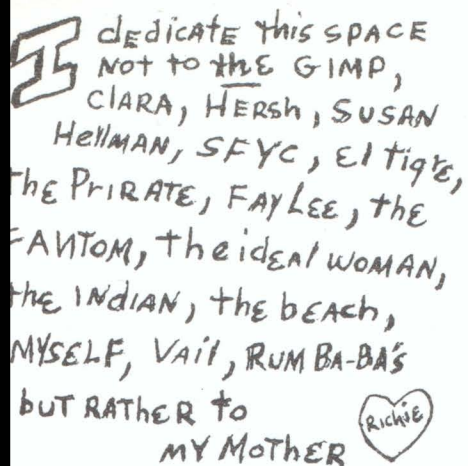 I dEdicATE this SPACE
NOT to thE GIMP,
ClARA, HERSh, SUSAN
HellMAN, SFYC, El tigrE,
thE PriRATE, FAY LEE, thE
FANTOM, the idEAl WOMAN,
thE INdiAN, thE bEAch,
MYSELF, VAil, RUM BA-BA's
but RATheR to
MY MOTHER
RichiE